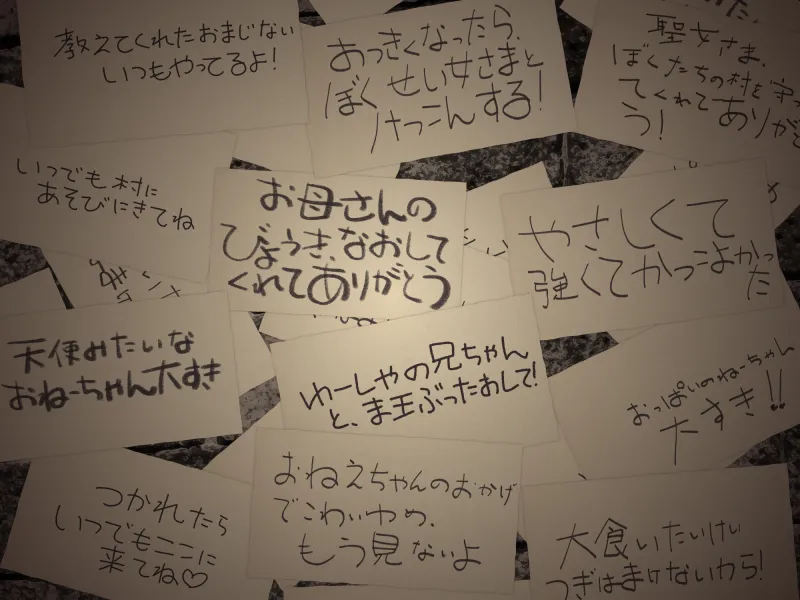 教えてくれたおまじない
いつもやってるよ!
おっきくなったら、
ぼく せい女さまと
けっこんする!
聖女さま、
ぼくたちの村を守っ
てくれてありがと
う!
いつでも村に
あそびにきてね
お母さんの
びょうき、なおして
くれてありがとう
やさしくて
強くてかっこよかっ
た
天使みたいな
おねーちゃん大すき
ゆーしゃの兄ちゃん
と、ま王ぶったおして!
おっぱいのねーちゃん
大すき!!
つかれたら
いつでもここに
来てね♡
おねえちゃんのおかげ
でこわいゆめ、
もう見ないよ
大食いたいけい
つぎはまけないから!